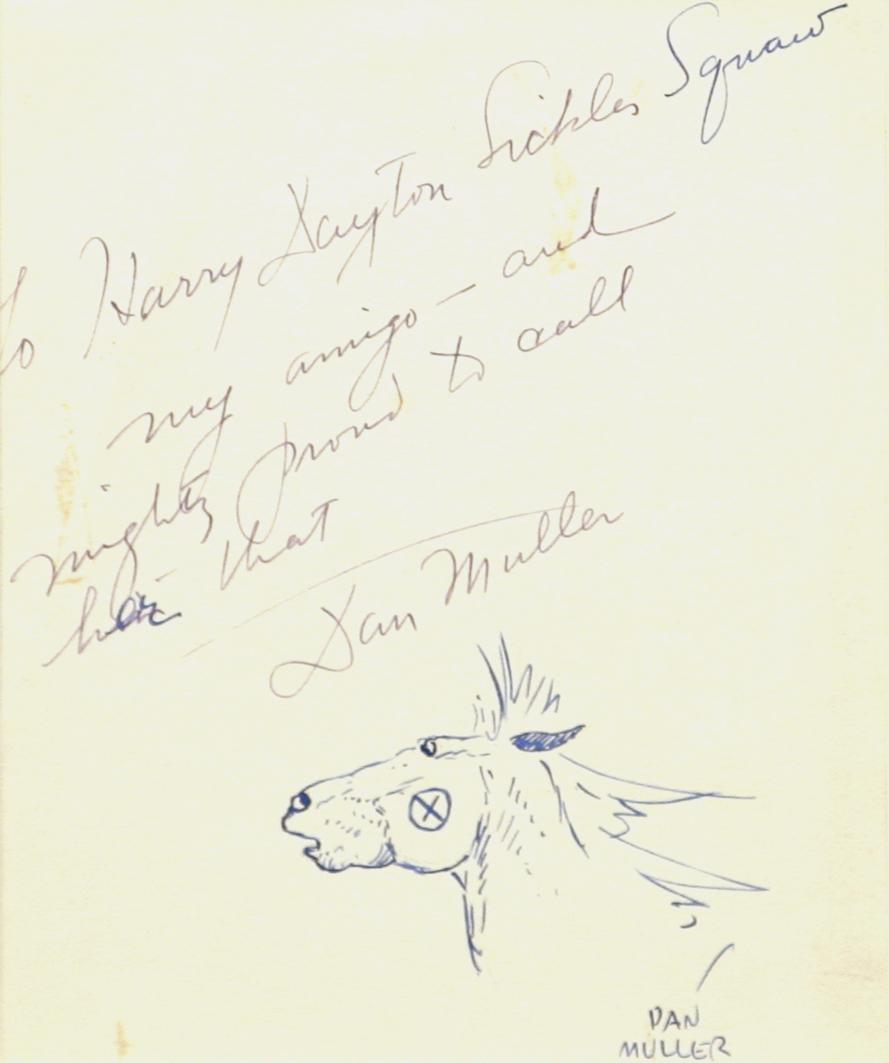 To Harry Dayton Sickles Squaw
my amigo — and
mighty proud to call
her that
Dan Muller
DAN
MULLER